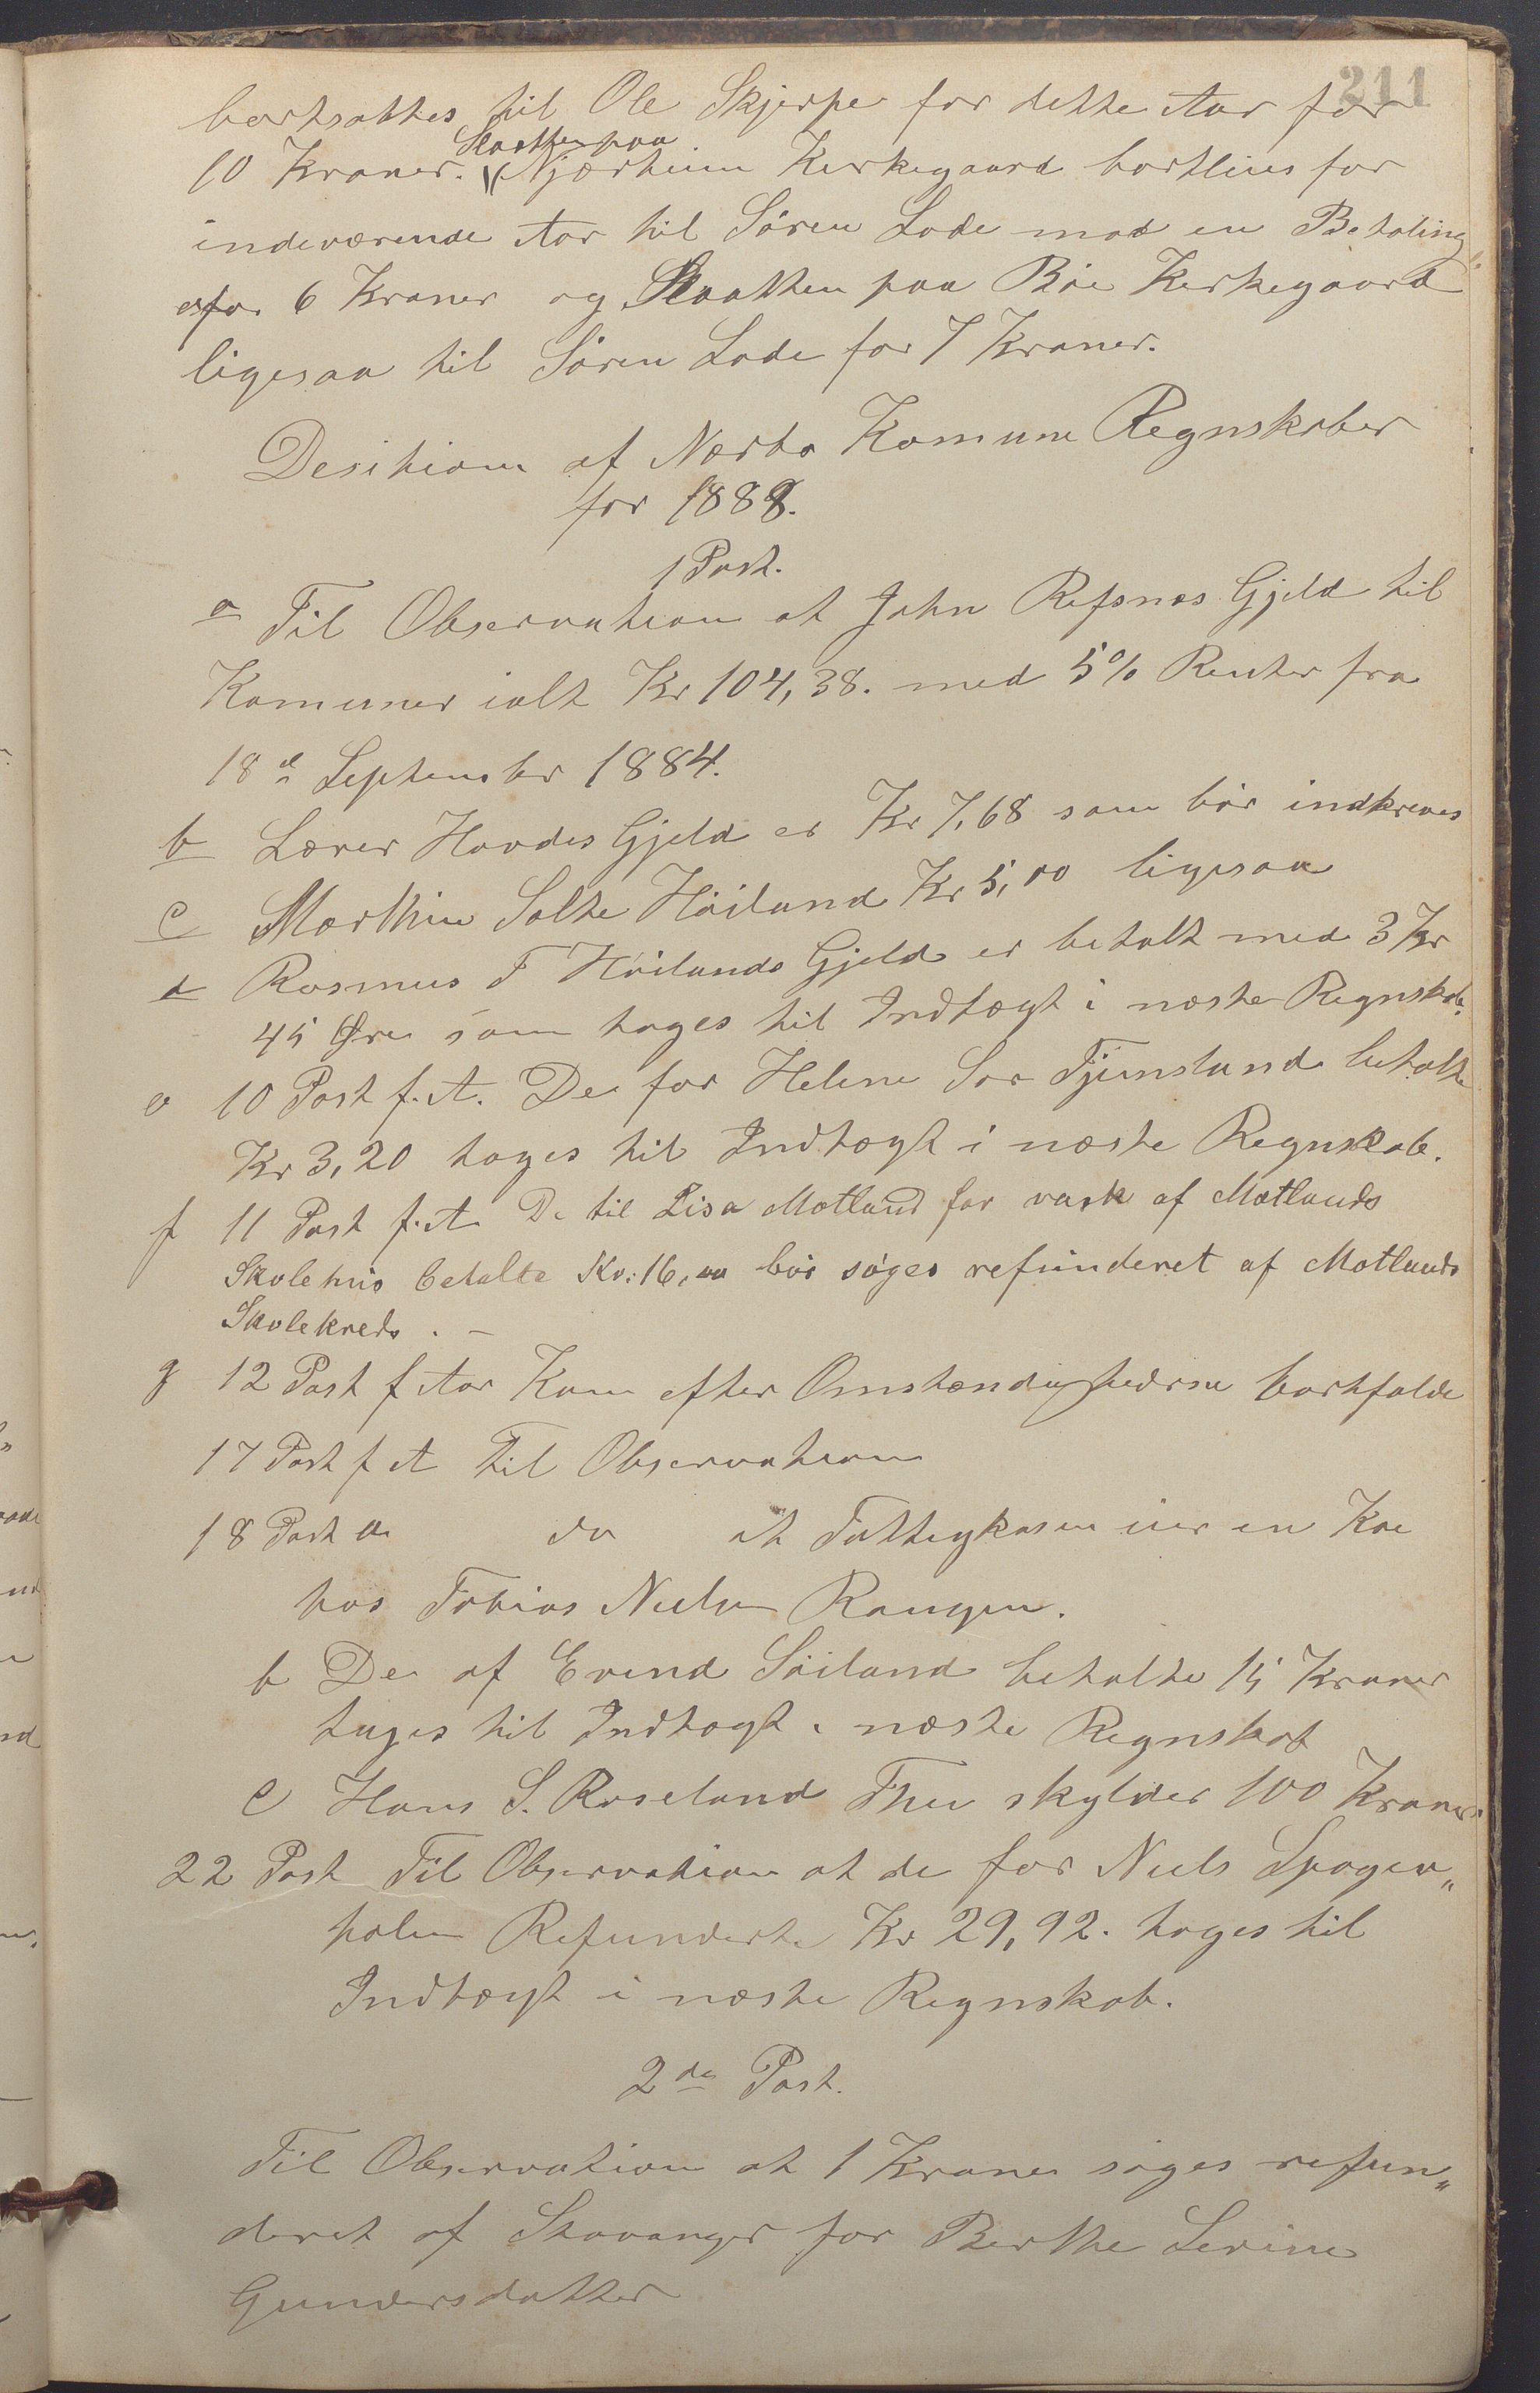 211
bortsattes til Ole Skjerpe for dette Aar for
10 Kroner. Slaatten paa Njærheim Kirkegaard bortlies for
indeværende Aar til Sören Lode mod en Betaling
for 6 Kroner og Slaatten paa Böe Kirkegaard
ligesaa til Sören Lode for 7 Kroner.
Desition af Nærbø Komune Regnskaber
for 1888.
1 Post.
a Til Observation at John Refsnes Gjeld til
Komuner ialt Kr 104,38. med 5% Renter fra
18de September 1884.
b Lærer Hovdes Gjeld er Kr 7,68 som bör indkreves
c Marthin Salte Höiland Kr 5,00 ligesaa
d Rasmus T Höilands Gjeld er betalt med 3 Kr
45 Øre som tages til Indtægt i næste Regnskab.
e 10 Post f. A. De for Helene Tjensland betalte
Kr 3,20 tages til Indtægt i næste Regnskab.
f 11 Post f. A De til Lisa Motland for vask af Motlands
Skolehus betalte Kr: 16,00 bör söges refunderet af Motlands
Skolekreds. –
g 12 Post f Aar Kan efter Omstændighederne bortfalde
17 Post f A Til Observation
18 Post a do at Fattigkasen eier en Koe
hos Tobias Nielsen Rangen.
b De af Evend Söiland betalte 15 Kroner
tages til Indtægt i næste Regnskab
c Hans S. Roseland Thu skylder 100 Kroner.
22 Post Til Observation at de for Niels Spogen„
holen Refunderte Kr 29,92. tages til
Indtægt i næste Regnskab.
2de Post.
Til Observation at 1 Krone söges refun„
deret af Stavanger for Berthe Serine
Gundersdatter